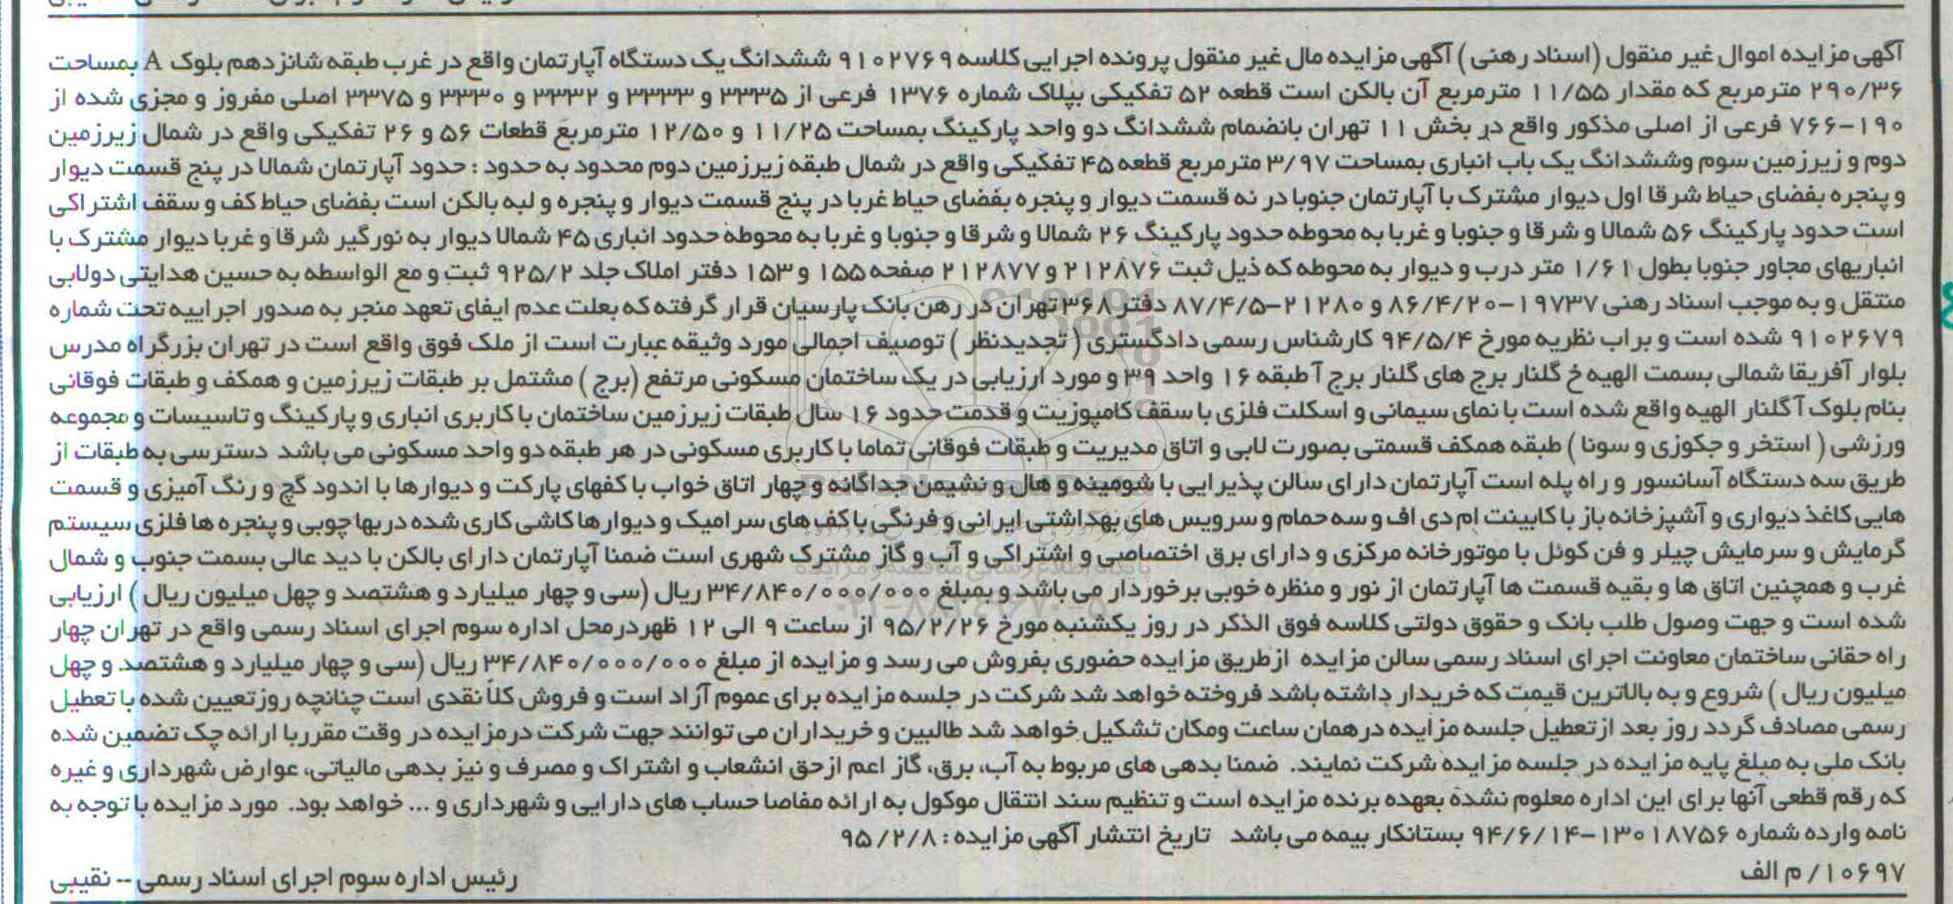 آگهی مزایده اموال غیر منقول (اسناد رهنی) آگهی مزایده مال غیر منقول پرونده اجرایی کلاسه ۹۱۰۲۷۶۹ ششدانگ یک دستگاه آپارتمان واقع در غرب طبقه شانزدهم بلوک A بمساحت
۲۹۰/۳۶ مترمربع که مقدار ۱۱/۵۵ مترمربع آن بالکن است قطعه ۵۲ تفکیکی بپلاک شماره ۱۳۷۶ فرعی از ۳۳۳۵ و ۳۳۳۳ و ۳۳۳۲ و ۳۳۳۰ و ۳۳۷۵ اصلی مفروز و مجزی شده از
۷۶۶-۱۹۰ فرعی از اصلی مذکور واقع در بخش ۱۱ تهران بانضمام ششدانگ دو واحد پارکینگ بمساحت ۱۱/۲۵ و ۱۲/۵۰ مترمربع قطعات ۵۶ و ۲۶ تفکیکی واقع در شمال زیرزمین
دوم و زیرزمین سوم وششدانگ یک باب انباری بمساحت ۳/۹۷ مترمربع قطعه ۴۵ تفکیکی واقع در شمال طبقه زیرزمین دوم محدود به حدود : حدود آپارتمان شمالا در پنج قسمت دیوار
و پنجره بفضای حیاط شرقا اول دیوار مشترک با آپارتمان جنوبا در نه قسمت دیوار و پنجره بفضای حیاط غربا در پنج قسمت دیوار و پنجره و لبه بالکن است بفضای حیاط کف و سقف اشتراکی
است حدود پارکینگ ۵۶ شمالا و شرقا و جنوبا و غربا به محوطه حدود پارکینگ ۲۶ شمالا و شرقا و جنوبا و غربا به محوطه حدود انباری ۴۵ شمالا دیوار به نورگیر شرقا و غربا دیوار مشترک با
انباریهای مجاور جنوبا بطول ۱/۶۱ متر درب و دیوار به محوطه که ذیل ثبت ۲۱۲۸۷۶ و ۲۱۲۸۷۷ صفحه ۱۵۵ و ۱۵۳ دفتر املاک جلد ۹۲۵/۲ ثبت و مع الواسطه به حسین هدایتی دولابی
منتقل و به موجب اسناد رهنی ۱۹۷۳۷-۸۶/۴/۲۰ و ۲۱۲۸۰-۸۷/۴/۵ دفتر ۳۶۸ تهران در رهن بانک پارسیان قرار گرفته که بعلت عدم ایفای تعهد منجر به صدور اجراییه تحت شماره
۹۱۰۲۶۷۹ شده است و براب نظریه مورخ ۹۴/۵/۴ کارشناس رسمی دادگستری ( تجدیدنظر ) توصیف اجمالی مورد وثیقه عبارت است از ملک فوق واقع است در تهران بزرگراه مدرس
بلوار آفریقا شمالی بسمت الهیه خ گلنار برج های گلنار برج آ طبقه ۱۶ واحد ۳۹ و مورد ارزیابی در یک ساختمان مسکونی مرتفع (برج ) مشتمل بر طبقات زیرزمین و همکف و طبقات فوقانی
بنام بلوک آ گلنار الهیه واقع شده است با نمای سیمانی و اسکلت فلزی با سقف کامپوزیت و قدمت حدود ۱۶ سال طبقات زیرزمین ساختمان با کاربری انباری و پارکینگ و تاسیسات و مجموعه
ورزشی ( استخر و جکوزی و سونا ) طبقه همکف قسمتی بصورت لابی و اتاق مدیریت و طبقات فوقانی تماما با کاربری مسکونی در هر طبقه دو واحد مسکونی می باشد دسترسی به طبقات از
طریق سه دستگاه آسانسور و راه پله است آپارتمان دارای سالن پذیرایی با شومینه و هال و نشیمن جداگانه و چهار اتاق خواب با کفهای پارکت و دیوارها با اندود گچ و رنگ آمیزی و قسمت
هایی کاغذ دیواری و آشپزخانه باز با کابینت ام دی اف و سه حمام و سرویس های بهداشتی ایرانی و فرنگی با کف های سرامیک و دیوارها کاشی کاری شده دربها چوبی و پنجره ها فلزی سیستم
گرمایش و سرمایش چیلر و فن کوئل با موتورخانه مرکزی و دارای برق اختصاصی و اشتراکی و آب و گاز مشترک شهری است ضمنا آپارتمان دارای بالکن با دید عالی بسمت جنوب و شمال
غرب و همچنین اتاق ها و بقیه قسمت ها آپارتمان از نور و منظره خوبی برخوردار می باشد و بمبلغ ۳۴/۸۴۰/۰۰۰/۰۰۰ ریال (سی و چهار میلیارد و هشتصد و چهل میلیون ریال ) ارزیابی
شده است و جهت وصول طلب بانک و حقوق دولتی کلاسه فوق الذکر در روز یکشنبه مورخ ۹۵/۲/۲۶ از ساعت ۹ الی ۱۲ ظهردرمحل اداره سوم اجرای اسناد رسمی واقع در تهران چهار
راه حقانی ساختمان معاونت اجرای اسناد رسمی سالن مزایده ازطریق مزایده حضوری بفروش می رسد و مزایده از مبلغ ۳۴/۸۴۰/۰۰۰/۰۰۰ ریال (سی و چهار میلیارد و هشتصد و چهل
میلیون ریال ) شروع و به بالاترین قیمت که خریدار داشته باشد فروخته خواهد شد شرکت در جلسه مزایده برای عموم آزاد است و فروش کلاً نقدی است چنانچه روزتعیین شده با تعطیل
رسمی مصادف گردد روز بعد ازتعطیل جلسه مزایده درهمان ساعت ومکان تشکیل خواهد شد طالبین و خریداران می توانند جهت شرکت درمزایده در وقت مقرربا ارائه چک تضمین شده
بانک ملی به مبلغ پایه مزایده در جلسه مزایده شرکت نمایند. ضمنا بدهی های مربوط به آب، برق، گاز اعم ازحق انشعاب و اشتراک و مصرف و نیز بدهی مالیاتی، عوارض شهرداری و غیره
که رقم قطعی آنها برای این اداره معلوم نشده بعهده برنده مزایده است و تنظیم سند انتقال موکول به ارائه مفاصا حساب های دارایی و شهرداری و ... خواهد بود. مورد مزایده با توجه به
نامه وارده شماره ۱۳۰۱۸۷۵۶-۹۴/۶/۱۴ بستانکار بیمه می باشد تاریخ انتشار آگهی مزایده : ۹۵/۲/۸
۱۰۶۹۷/ م الف
رئیس اداره سوم اجرای اسناد رسمی -- نقیبی